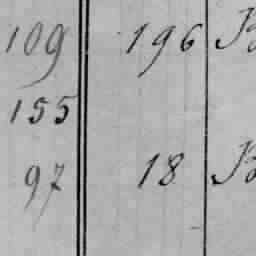 109 196 B
155
97 18 B